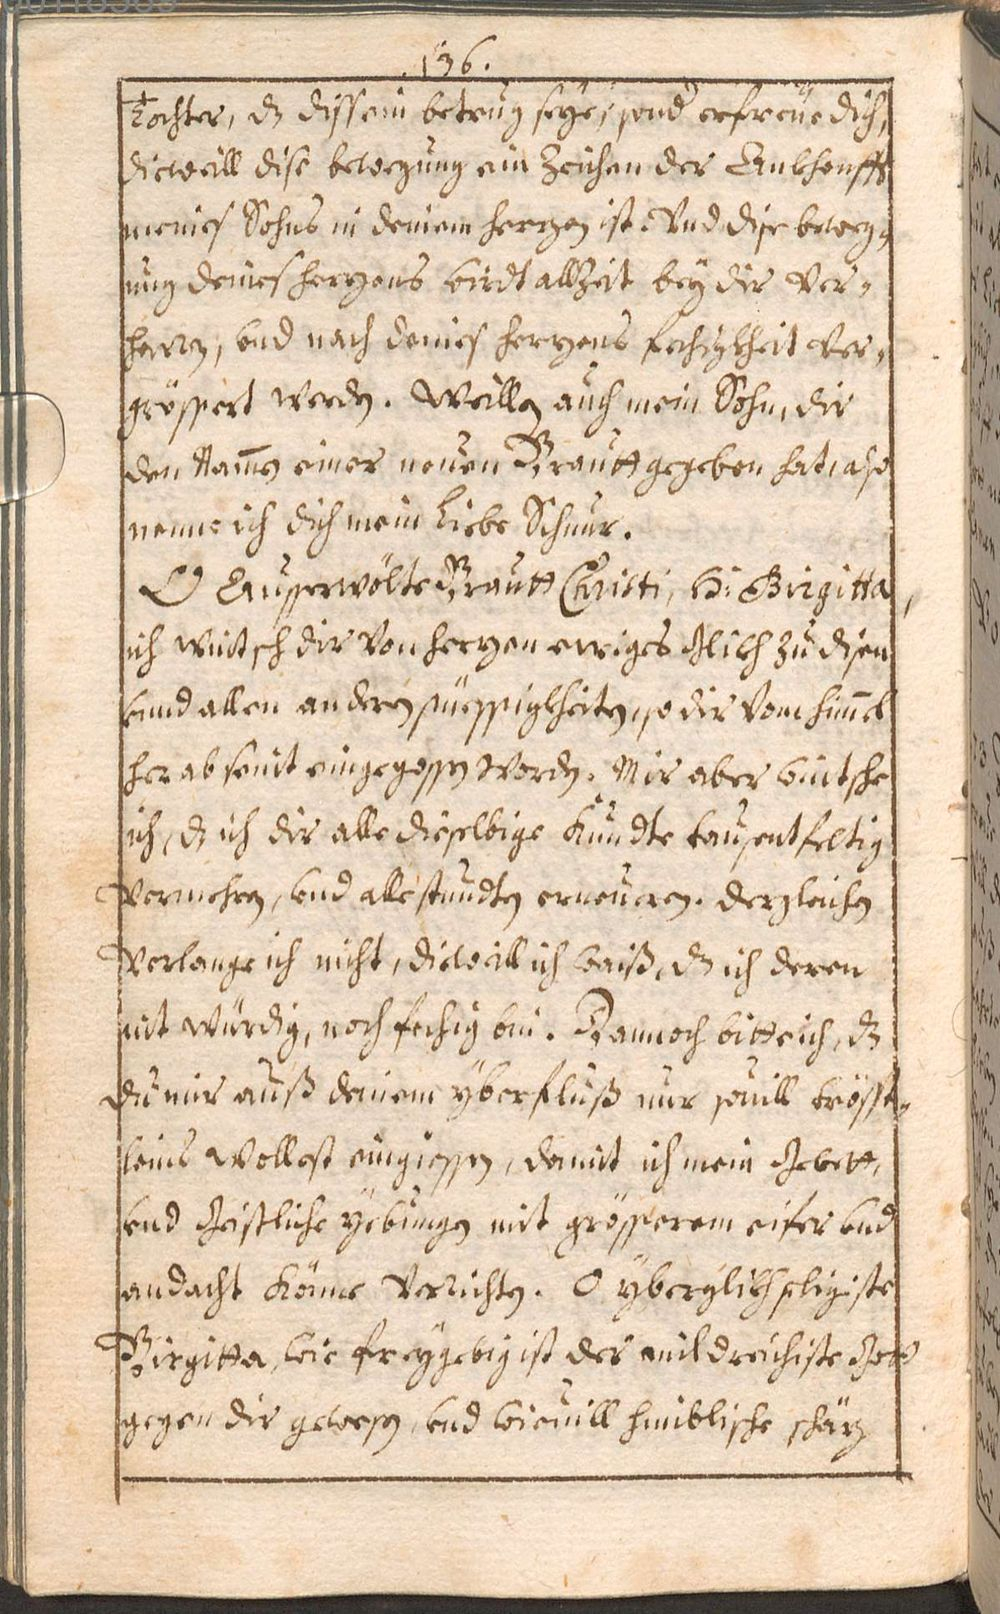 .136.
Tochter, dz diss ein betrug seye, sond erfreüe dich,
dieweill dise bewegung ein Zeichen der Ankhonfft
meines Sohns in deinem herzen ist. Vnd dise beweg-
ung deines herzens wirdt allzeit bey dir ver-
harren, vnd nach deines herzens fechigkheit ver-
grössert werden. Weillen auch mein Sohn, dir
den Namen einer neuen Brautt gegeben hat, also
nenne ich dich mein liebe Schnur.
O Ausserwölte Brautt Christi, H: Birgitta,
ich wintsch dir von herzen ewiges glikh zu disen
vnnd allen anderen siessigkheiten, so dir vom himel
herab seint eingegossen worden. Mir aber wintsche
ich, dz ich dir alle dieselbige kundte tausentfeltig
vermehren, vnd alle stundten erneueren. dergleichen
verlange ich nicht, dieweill ich waiß, dz ich deren
nit würdig, noch fechig bin. Dannoch bitte ich, dz
du mir auß deinem yberfluß nur souill tröpf-
leins wollest eingiessen, damit ich mein gebett,
vnd geistliche yebungen mit grösserem eifer vnd
andacht könne verrichten. O yberglikhseligiste
Birgitta, wie freygebig ist der mildreichiste Gott
gegen dir gewesen, vnd wieuill himblische schäz